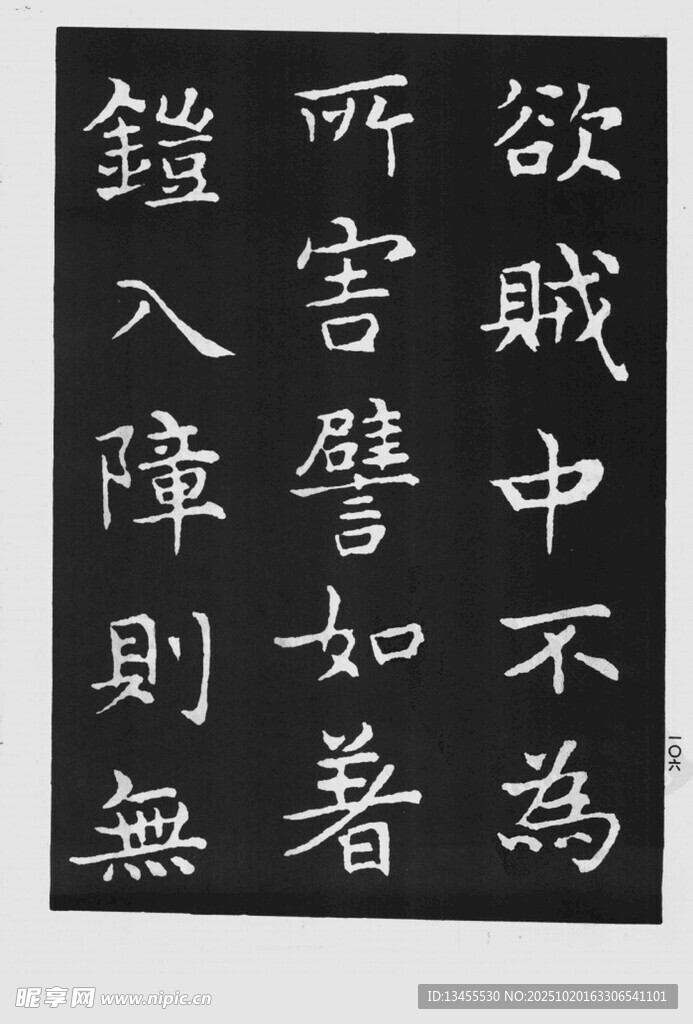 欲賊中不為
所害譬如著
鎧入障則無
一〇六
昵享网 www.nipic.cn
ID:13455530 NO:20251020163306541101